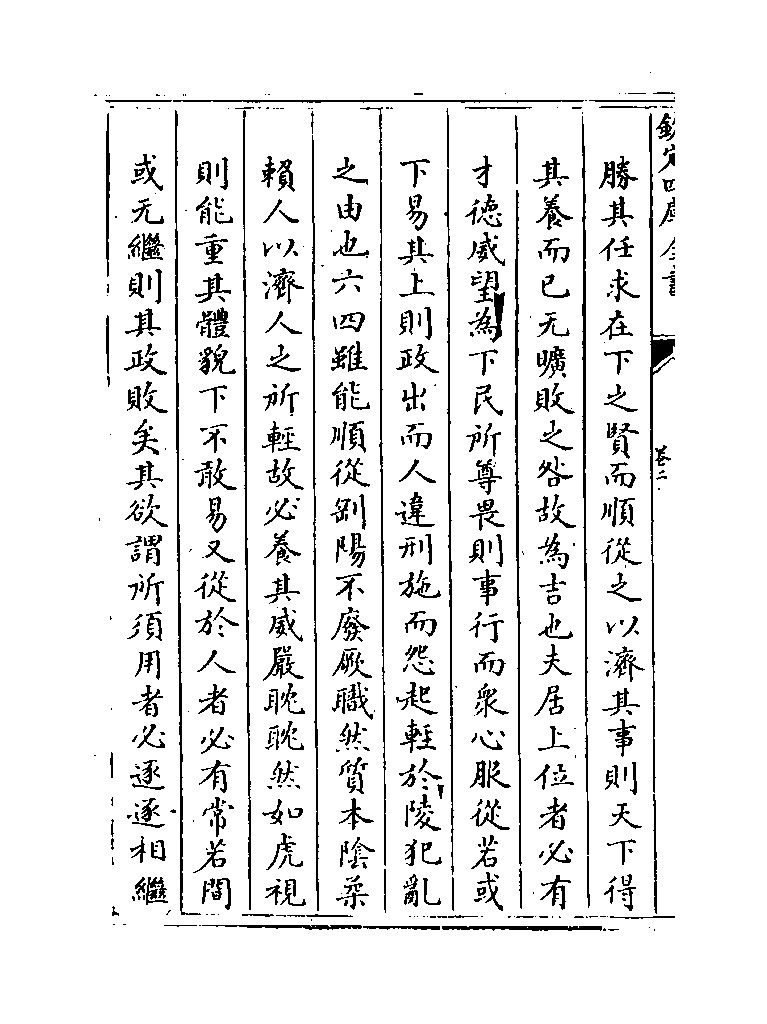 欽定四庫全書
卷二
勝其任求在下之賢而順從之以濟其事則天下得
其養而已无曠敗之咎故為吉也夫居上位者必有
才德威望為下民所尊畏則事行而衆心服從若或
下易其上則政出而人違刑施而怨起輕於陵犯亂
之由也六四雖能順從剛陽不廢厥職然質本陰柔
賴人以濟人之所輕故必養其威嚴眈眈然如虎視
則能重其體貌下不敢易又從於人者必有常若間
或无繼則其政敗矣其欲謂所須用者必逐逐相繼